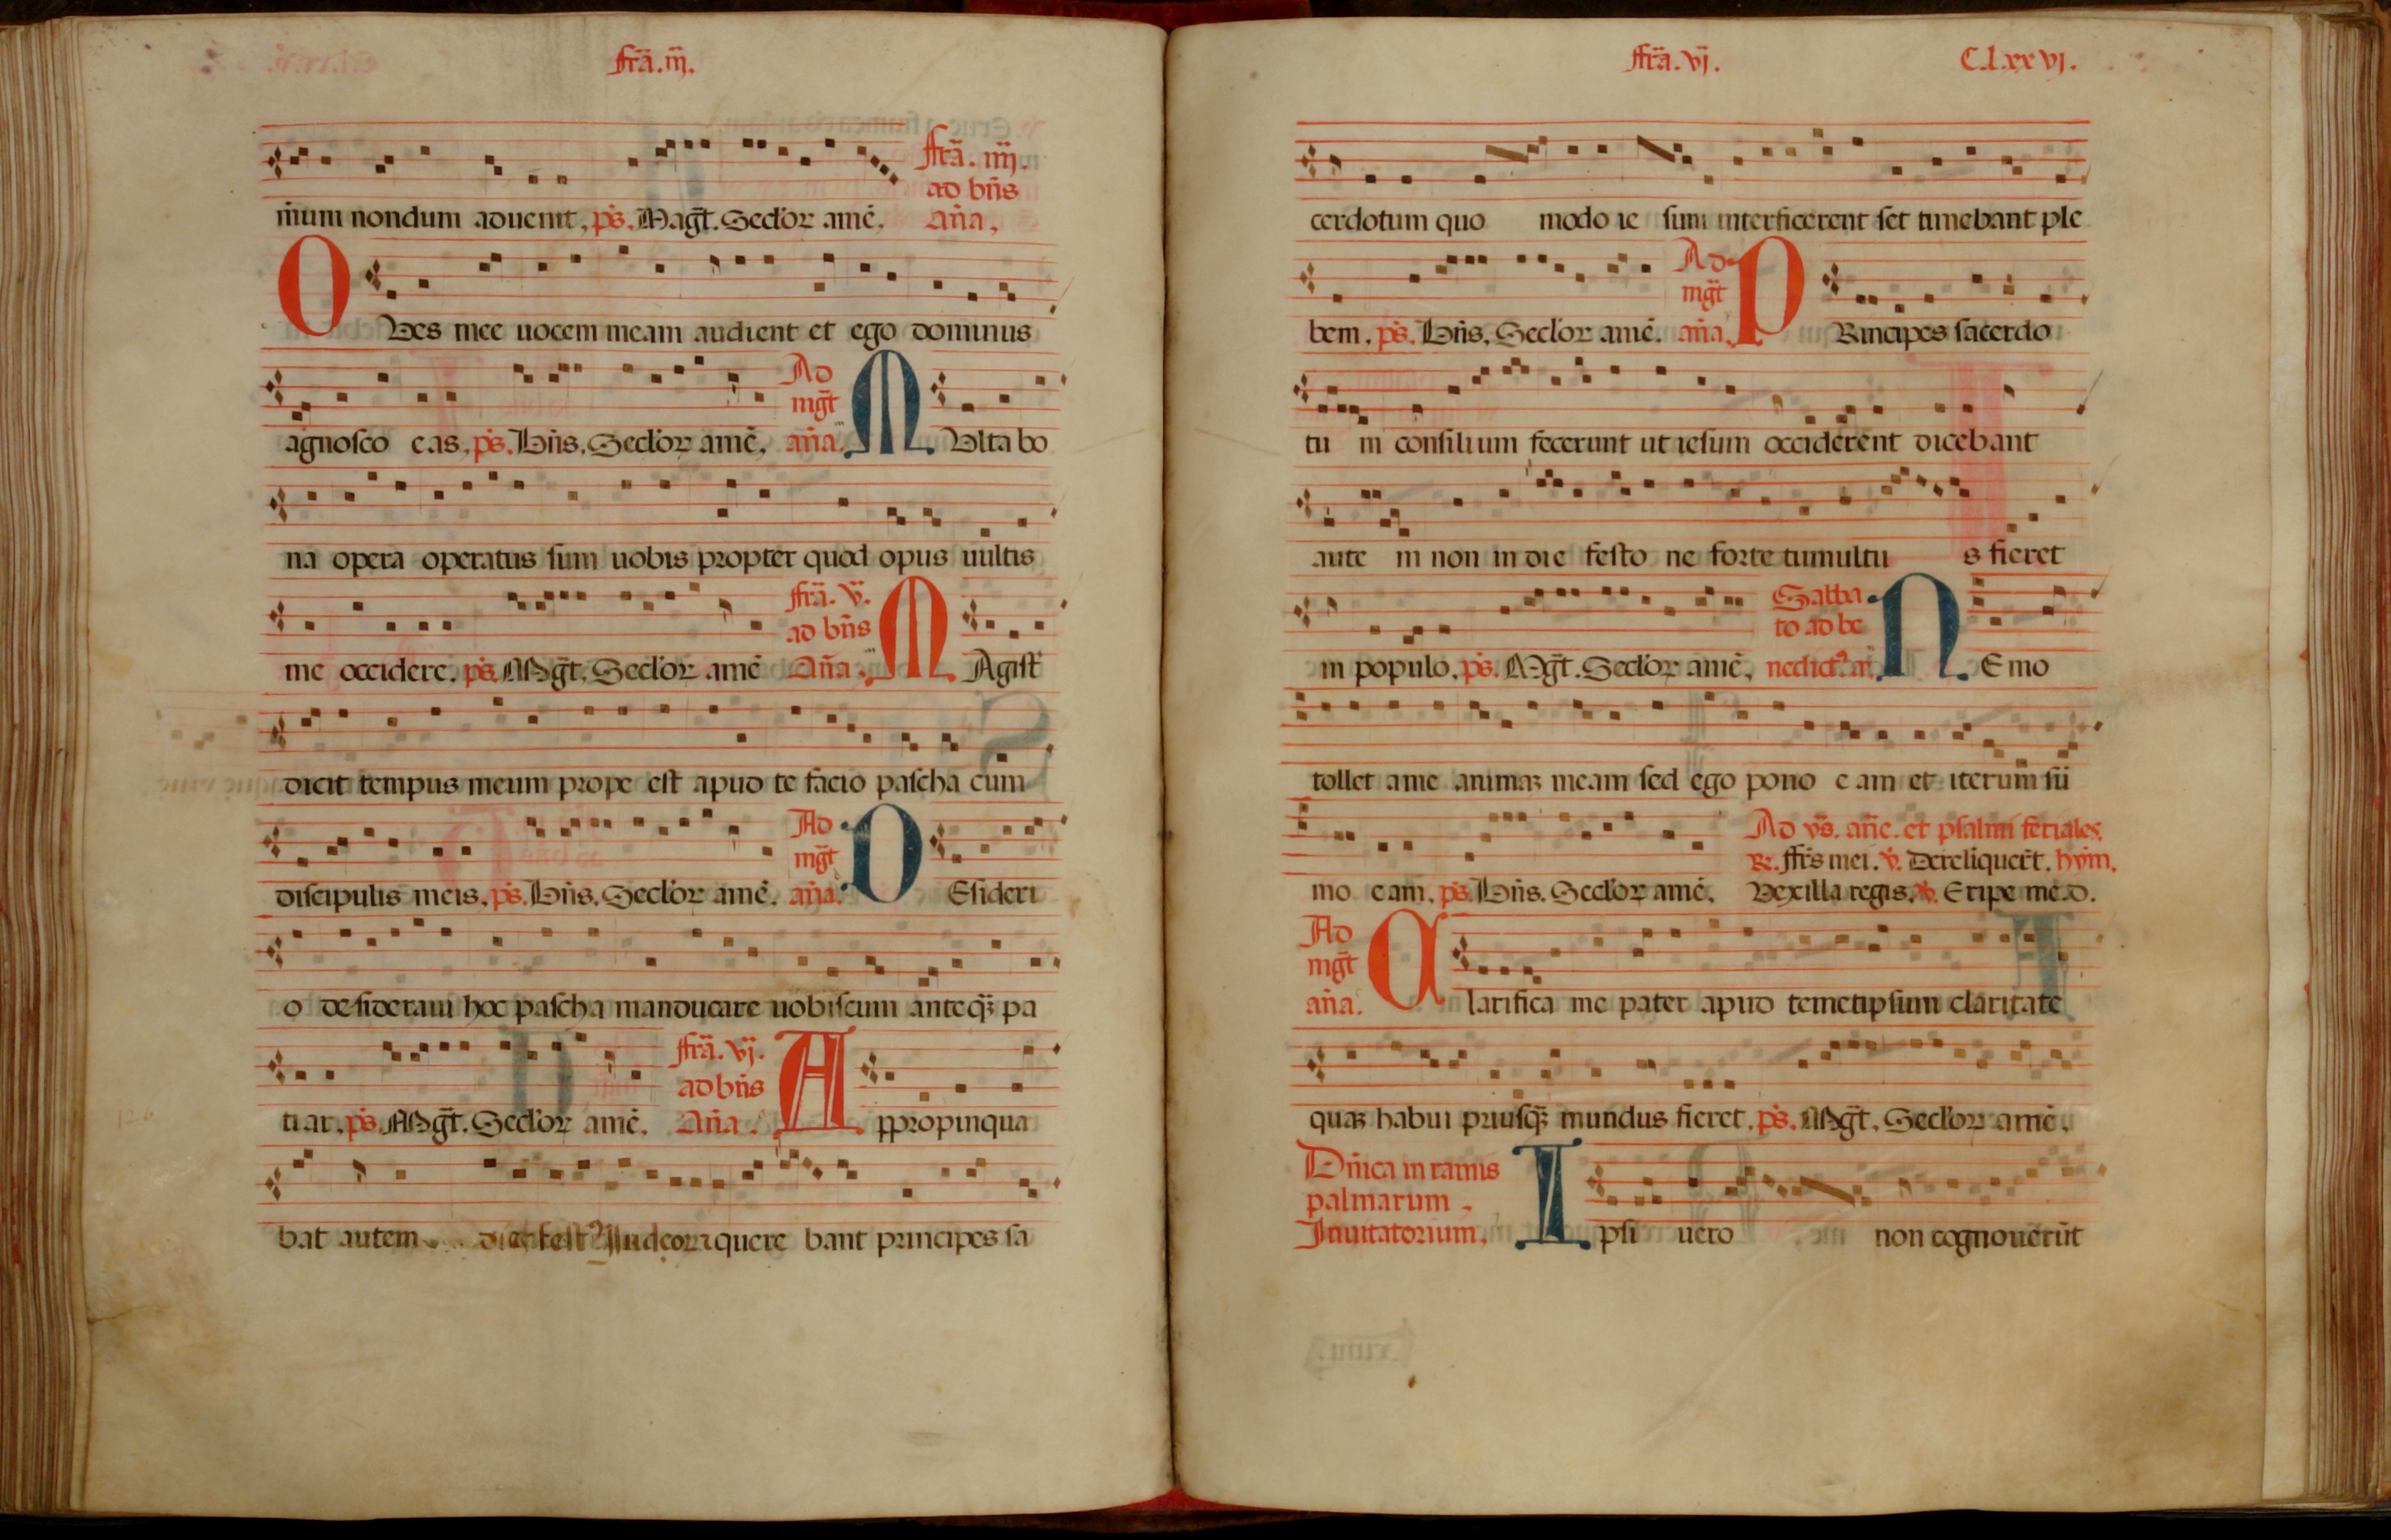 fr̃a. iij.
m̃um nondum aduenit, ps̃. Mag̃t. Seclor amẽ. fr̃a. iiij. ad bñs aña.
O Ves mee uocem meam audient et ego dominus
agnosco eas, ps̃. Bñs. Seclor amẽ. Ad mg̃t aña. M Vlta bo
na opera operatus sum uobis propter quod opus uultis
me occidere. ps̃. Mg̃t. Seclor amẽ fr̃a. v̈. ad bñs Aña. M Agist̃
dicit tempus meum prope est apud te facio pascha cum
discipulis meis. ps̃. Bñs. Seclor amẽ. Ad mg̃t añа. D Esideri
o desideraui hoc pascha manducare uobiscum anteq̃ȝ pa
tiar. ps̃. Mg̃t. Seclor amẽ. fr̃a. vj. ad bñs Añа. A ppropinqua
bat autem dies fest⁹ Iudeoꝝ quere bant principes sa
fr̃a. vj. C.l.xx vj.
cerdotum quo modo ie sum interficerent set timebant ple
bem. ps̃. Bñs. Seclor amẽ. Ad mg̃t añа. P Rincipes sacerdo
tu m consilium fecerunt ut iesum occiderent dicebant
aute m non in die festo ne forte tumultu s fieret
in populo. ps̃. Mg̃t. Seclor amẽ. Sabba to ad be nedict⁹. añ. N E mo
tollet ame animaȝ meam sed ego pono e am et iterum su
mo eam. ps̃. Bñs. Seclor amẽ. Ad vs̃. añe. et psalmi feriales.
R. fr̃s mei. v̇. Dereliquer̃t. hym̃.
Vexilla regis. v̇. Eripe me. d.
Ad mg̃t añа. C larifica me pater apud temetipsum claritate
quaȝ habui priusq̃ȝ mundus fieret. ps̃. Mg̃t. Seclor amẽ.
Dñica in ramis
palmarum
Inuitatorium. I psi uero non cognouerũt